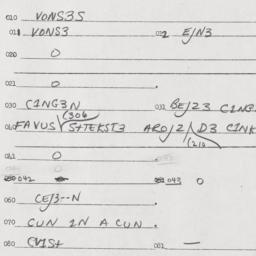 010 VONS3S
011 VONS3 012 EJN3
020 0
021 0
030 C1NG3N 031 BEJ23 C1NG
(306
040 FAVUS S+TEKST3 AROJ2 D3 C1NK
(210
041 0
042 043 0
060 CEJ3--N
070 CUN 1N A CUN.
080 CV1S+ 081 —